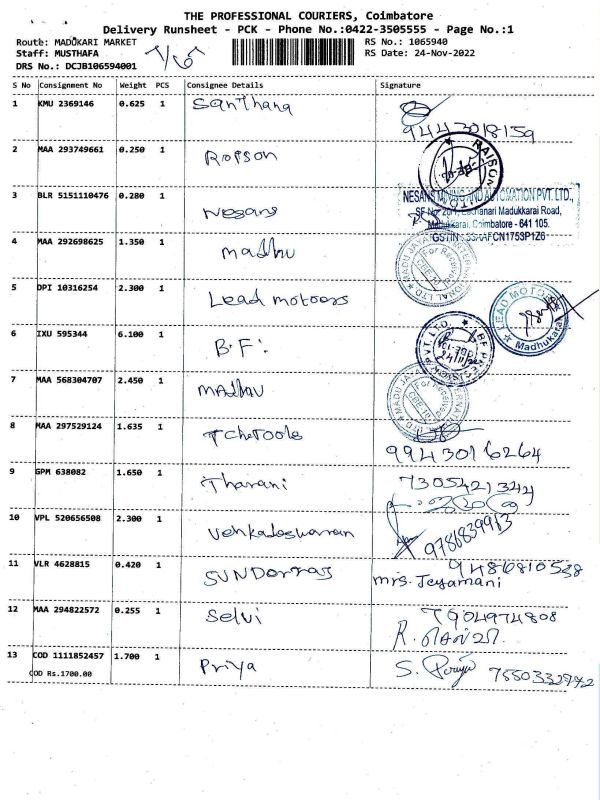 THE PROFESSIONAL COURIERS, Coimbatore
Delivery Runsheet - PCK - Phone No.:0422-3505555 - Page No.:1
Route: MADUKARI MARKET
RS No.: 1065940
Staff: MUSTHAFA
RS Date: 24-Nov-2022
DRS No.: DCJB106594001
S No Consignment No Weight PCS Consignee Details Signature
1 KMU 2369146 0.625 1 Santhana
9443018159
2 MAA 293749661 0.250 1 Roison
3 BLR 5151110476 0.280 1 Nesans
NESANS MINING AND AUTOMATION PVT. LTD.,
Madukkarai Road,
Madukkarai, Coimbatore - 641 105.
4 MAA 292698625 1.350 1 Madhu
5 DPI 10316254 2.300 1 Lead motoors
LEAD MOTO
Madhukarai
6 IXU 595344 6.100 1 B.F.
PVT. LTD.
7 MAA 568304707 2.450 1 Madhu
8 MAA 297529124 1.635 1
9943016264
9 GPM 638082 1.650 1 Tharani
7305421344
10 VPL 520656508 2.300 1 Venkadeshwaran
9786839913
11 VLR 4628815 0.420 1
9486810538
mrs. Jeyamani
12 MAA 294822572 0.255 1 Selvi
7904974808
13 COD 1111852457 1.700 1 Priya
S. Priya 7550332942
COD Rs.1700.00